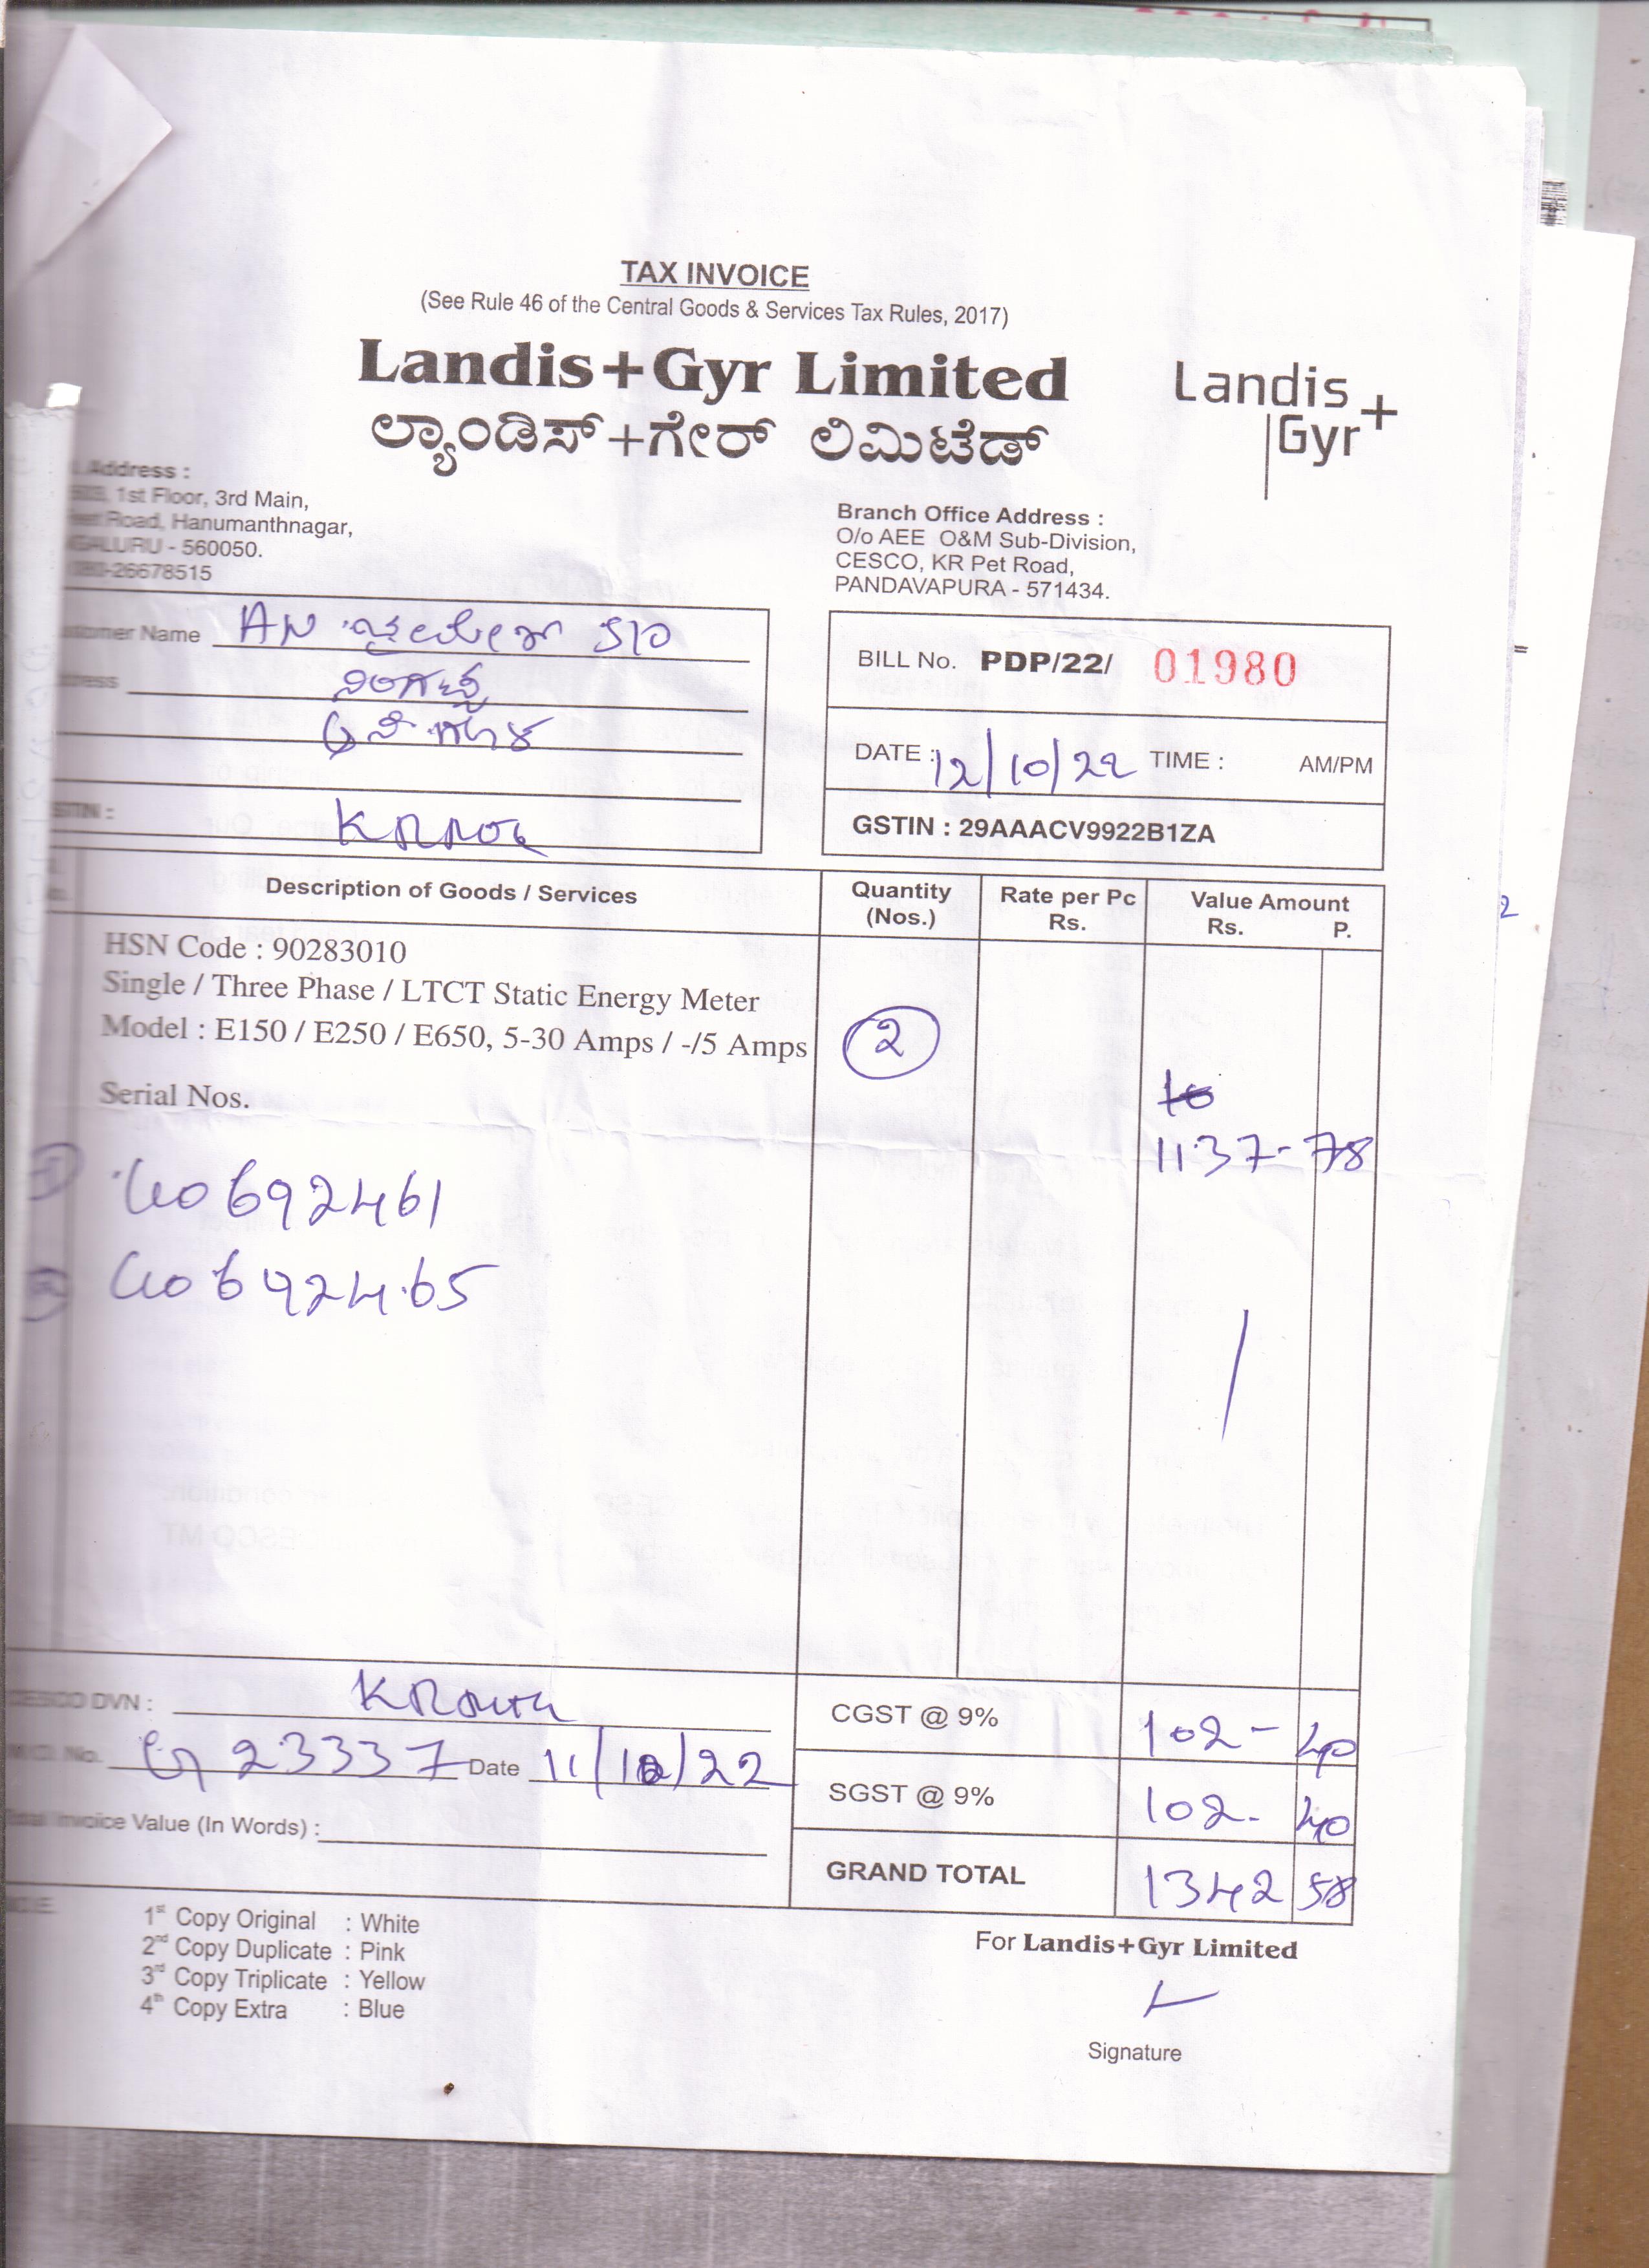 TAX INVOICE
(See Rule 46 of the Central Goods & Services Tax Rules, 2017)
Landis+Gyr Limited
ಲ್ಯಾಂಡಿಸ್+ಗೇರ್ ಲಿಮಿಟೆಡ್
Landis
Gyr+
Address :
1st Floor, 3rd Main,
Road, Hanumanthnagar,
- 560050.
080-26678515
Branch Office Address :
O/o AEE O&M Sub-Division,
CESCO, KR Pet Road,
PANDAVAPURA - 571434.
Customer Name AN S/o
BILL No. PDP/22/ 01980
DATE : 12/10/22 TIME : AM/PM
GSTIN :
GSTIN : 29AAACV9922B1ZA
Description of Goods / Services
Quantity (Nos.)
Rate per Pc Rs.
Value Amount Rs. P.
HSN Code : 90283010
Single / Three Phase / LTCT Static Energy Meter
Model : E150 / E250 / E650, 5-30 Amps / -/5 Amps
2
Serial Nos.
1137-78
692461
692465
CESCO DVN :
CGST @ 9% 102-40
No. G 23337 Date 11/10/22
SGST @ 9% 102-40
Total Invoice Value (In Words) :
GRAND TOTAL 1342 58
1st Copy Original : White
2nd Copy Duplicate : Pink
3rd Copy Triplicate : Yellow
4th Copy Extra : Blue
For Landis+Gyr Limited
Signature